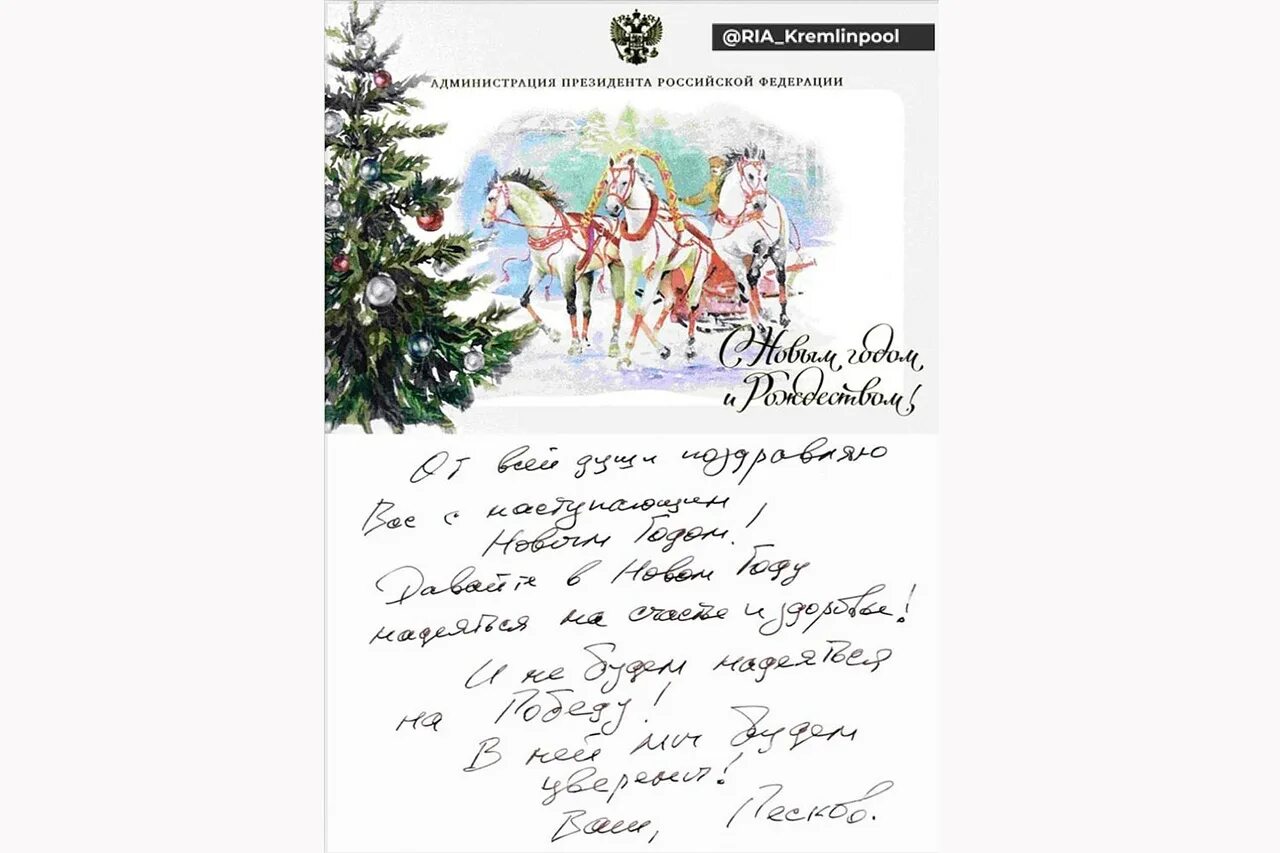 @RIA_Kremlinpool
АДМИНИСТРАЦИЯ ПРЕЗИДЕНТА РОССИЙСКОЙ ФЕДЕРАЦИИ
С Новым годом
и Рождеством!
От всей души поздравляю
Вас с наступающим
Новым Годом!
Давайте в Новом Году
надеяться на счастье и здоровье!
И не будем надеяться
на Победу!
В ней мы будем
уверены!
Ваш, Песков.